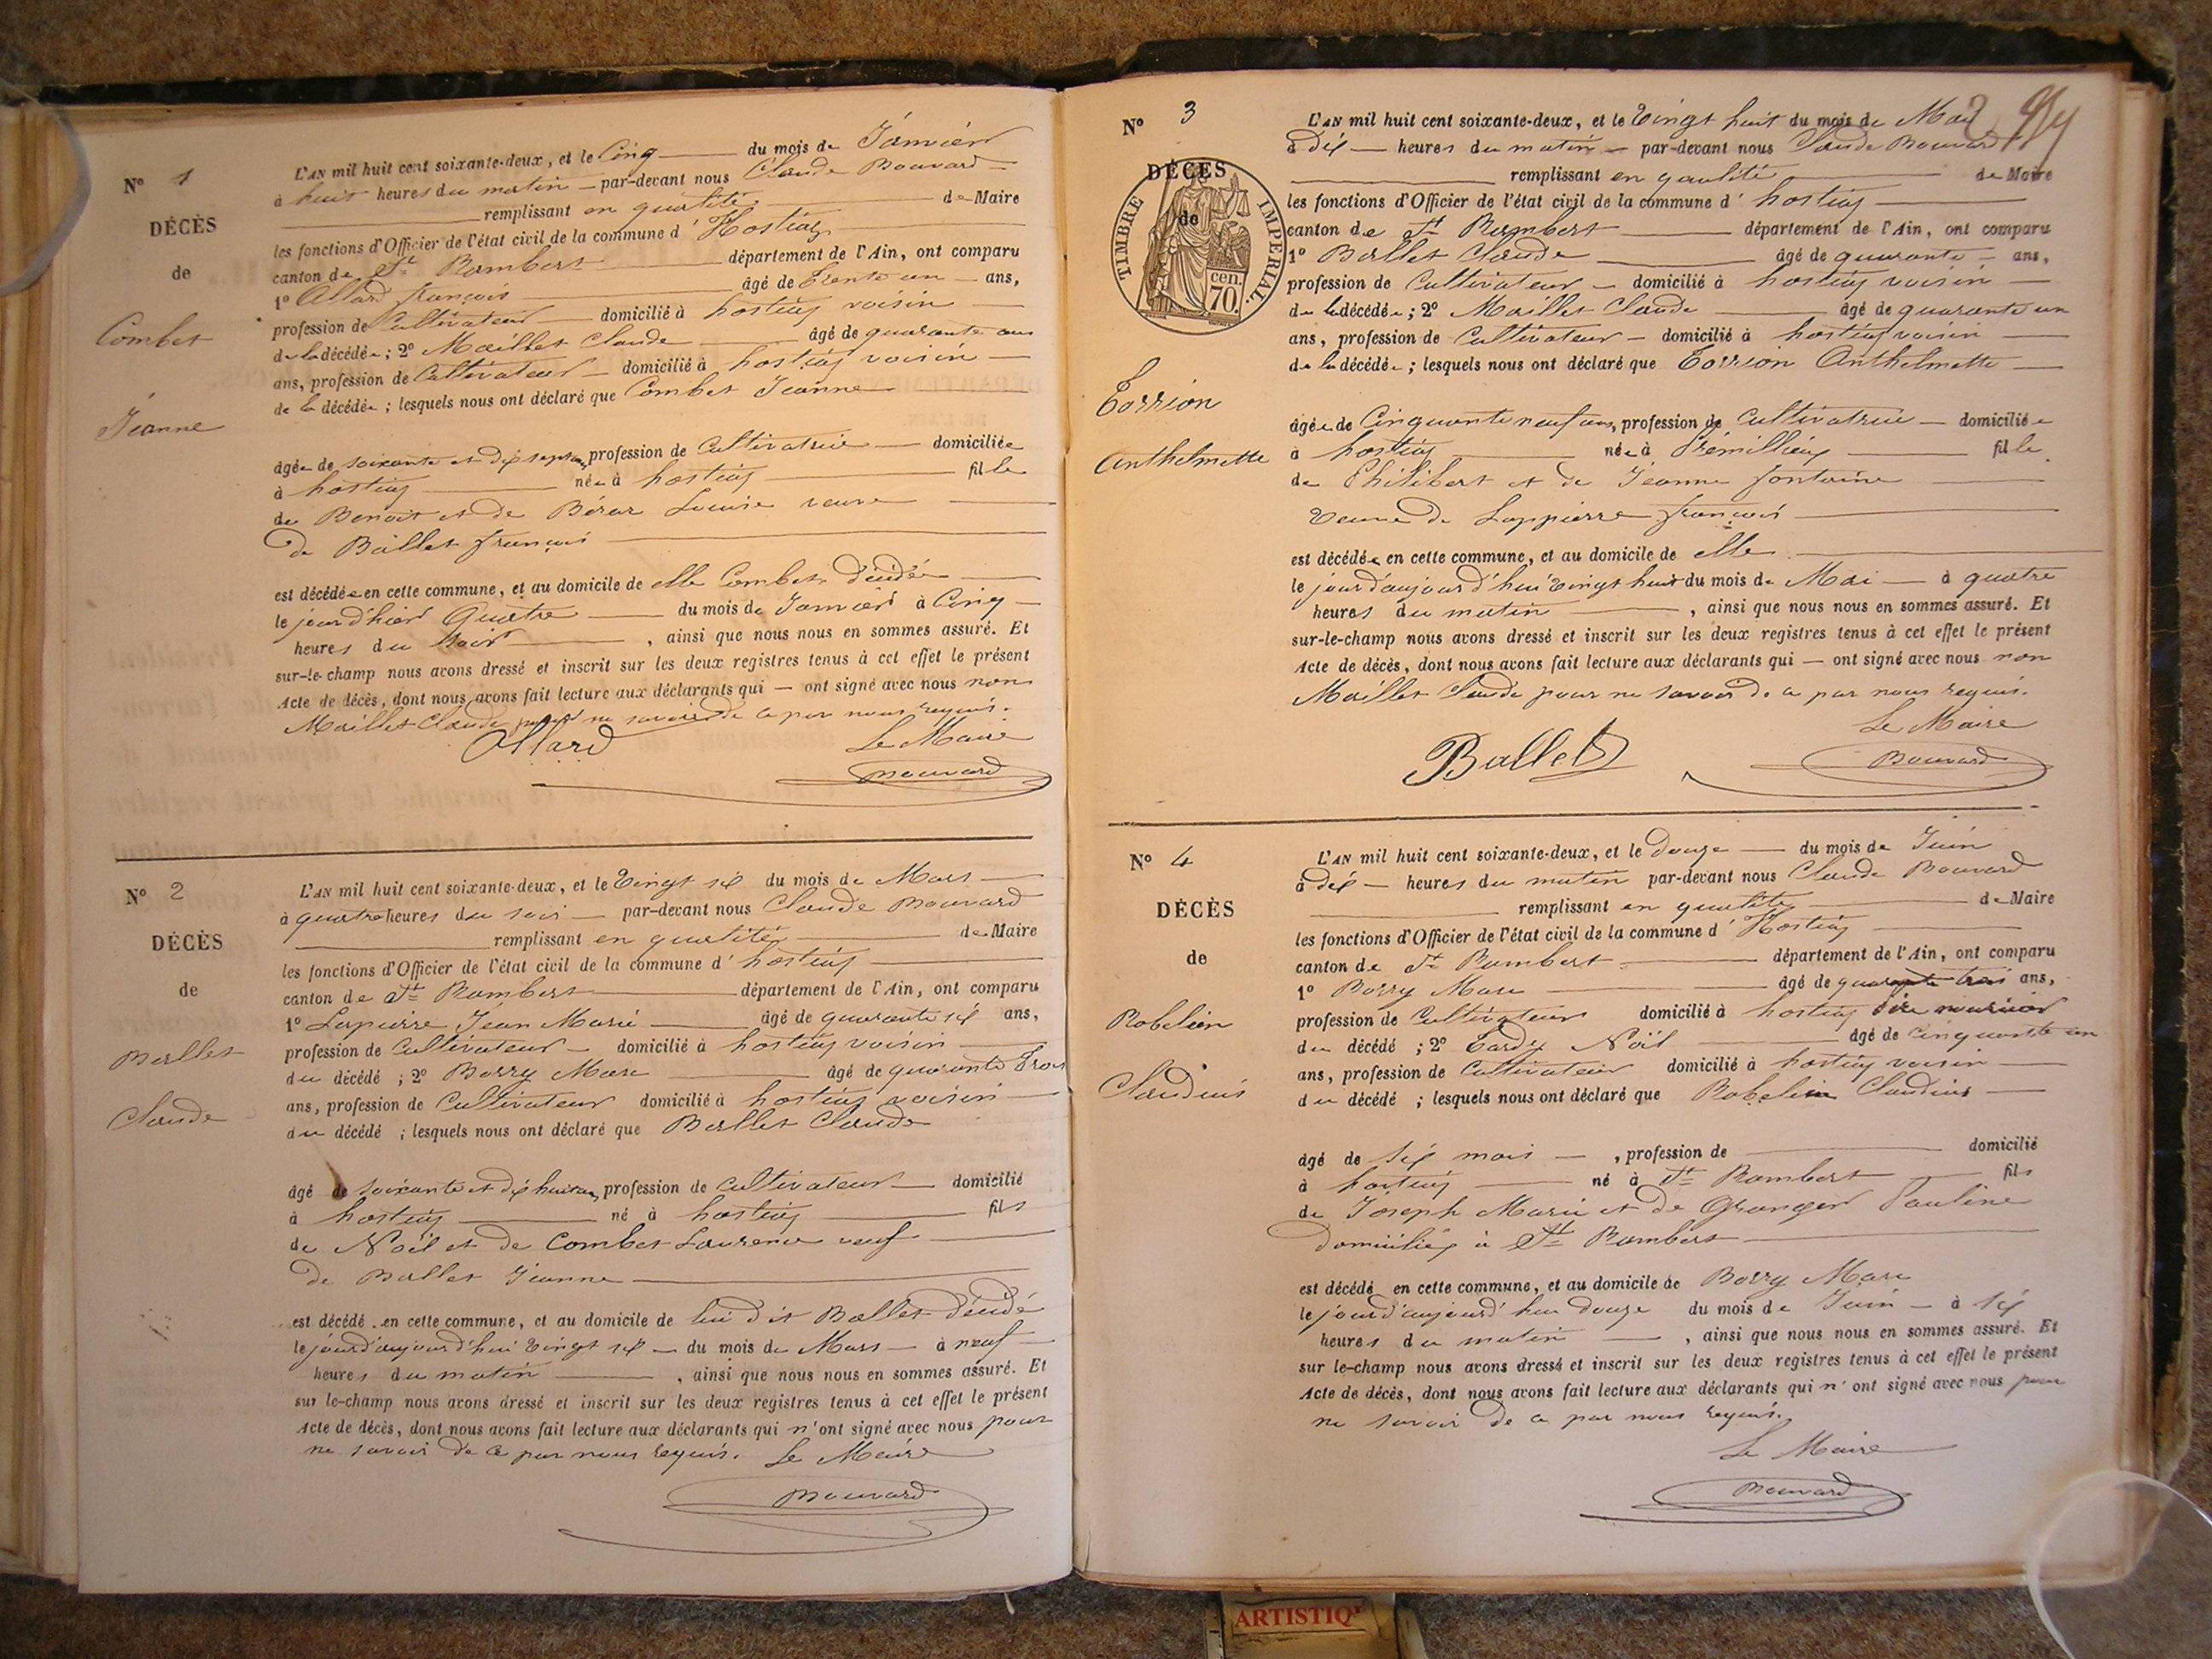 N° 1
DÉCÈS
de
Combet
Jeanne
L'AN mil huit cent soixante-deux, et le Cinq du mois de Janvier
à huit heures du matin par-devant nous Claude Bouvard
remplissant en qualité de Maire
les fonctions d'Officier de l'état civil de la commune d'Hostiaz
canton de St Rambert département de l'Ain, ont comparu
1° Allard françois âgé de trente un ans,
profession de Cultivateur domicilié à hostiaz voisin
de la décédée ; 2° Maillet Claude âgé de quarante ans
ans, profession de Cultivateur domicilié à hostiaz voisin
de la décédée ; lesquels nous ont déclaré que Combet Jeanne
âgée de soixante et dix sept ans, profession de Cultivatrice domiciliée
à hostiaz née à hostiaz fille
de Benoit et de Bérar Louise veuve
de Ballet françois
est décédée en cette commune, et au domicile de elle Combet décédée
le jour d'hier Quatre du mois de Janvier à Cinq
heures du soir , ainsi que nous nous en sommes assuré. Et
sur-le-champ nous avons dressé et inscrit sur les deux registres tenus à cet effet le présent
Acte de décès, dont nous avons fait lecture aux déclarants qui — ont signé avec nous non
Maillet Claude pour ne savoir de ce par nous requis.
Allard Le Maire
Bouvard
N° 2
DÉCÈS
de
Ballet
Claude
L'AN mil huit cent soixante-deux, et le Vingt six du mois de Mars
à quatre heures du soir par-devant nous Claude Bouvard
remplissant en qualité de Maire
les fonctions d'Officier de l'état civil de la commune d'hostiaz
canton de St Rambert département de l'Ain, ont comparu
1° Lapierre Jean Marie âgé de quarante six ans,
profession de Cultivateur domicilié à hostiaz voisin
du décédé ; 2° Borry Marc âgé de quarante trois
ans, profession de Cultivateur domicilié à hostiaz voisin
du décédé ; lesquels nous ont déclaré que Ballet Claude
âgé de soixante et dix huit ans, profession de Cultivateur domicilié
à hostiaz né à hostiaz fils
de Noël et de Combet Laurence veuf
de Ballet Jeanne
est décédé en cette commune, et au domicile de lui dit Ballet décédé
le jour d'aujourd'hui Vingt six du mois de Mars à neuf
heures du matin , ainsi que nous nous en sommes assuré. Et
sur le-champ nous avons dressé et inscrit sur les deux registres tenus à cet effet le présent
Acte de décès, dont nous avons fait lecture aux déclarants qui n'ont signé avec nous pour
ne savoir de ce par nous requis. Le Maire
Bouvard
N° 3
DÉCÈS
de
TIMBRE IMPERIAL
cen.
70.
Torrion
Anthelmette
L'AN mil huit cent soixante-deux, et le Vingt huit du mois de Mai
à dix heures du matin par-devant nous Claude Bouvard
remplissant en qualité de Maire
les fonctions d'Officier de l'état civil de la commune d'hostiaz
canton de St Rambert département de l'Ain, ont comparu
1° Ballet Claude âgé de quarante ans,
profession de Cultivateur domicilié à hostiaz voisin
de la décédée ; 2° Maillet Claude âgé de quarante un
ans, profession de Cultivateur domicilié à hostiaz voisin
de la décédée ; lesquels nous ont déclaré que Torrion Anthelmette
âgée de Cinquante neuf ans, profession de Cultivatrice domiciliée
à hostiaz née à Prémillieu fille
de Philibert et de Jeanne fontaine
Veuve de Lappierre françois
est décédée en cette commune, et au domicile de elle
le jour d'aujourd'hui Vingt huit du mois de Mai à quatre
heures du matin , ainsi que nous nous en sommes assuré. Et
sur-le-champ nous avons dressé et inscrit sur les deux registres tenus à cet effet le présent
Acte de décès, dont nous avons fait lecture aux déclarants qui — ont signé avec nous non
Maillet Claude pour ne savoir de ce par nous requis.
Le Maire
Ballet Bouvard
N° 4
DÉCÈS
de
Robelin
Claudius
L'AN mil huit cent soixante-deux, et le douze du mois de Juin
à dix heures du matin par-devant nous Claude Bouvard
remplissant en qualité de Maire
les fonctions d'Officier de l'état civil de la commune d'Hostiaz
canton de St Rambert département de l'Ain, ont comparu
1° Borry Marc âgé de quarante trois ans,
profession de Cultivateur domicilié à hostiaz
du décédé ; 2° Tardy Noël âgé de Cinquante un
ans, profession de Cultivateur domicilié à hostiaz voisin
du décédé ; lesquels nous ont déclaré que Robelin Claudius
âgé de six mois , profession de domicilié
à hostiaz né à St Rambert fils
de Joseph Marie et de Granger Pauline
domiciliés à St Rambert
est décédé en cette commune, et au domicile de Borry Marc
le jour d'aujourd'hui douze du mois de Juin à six
heures du matin , ainsi que nous nous en sommes assuré. Et
sur le-champ nous avons dressé et inscrit sur les deux registres tenus à cet effet le présent
Acte de décès, dont nous avons fait lecture aux déclarants qui n'ont signé avec nous pour
ne savoir de ce par nous requis.
Le Maire
Bouvard
ARTISTIQ